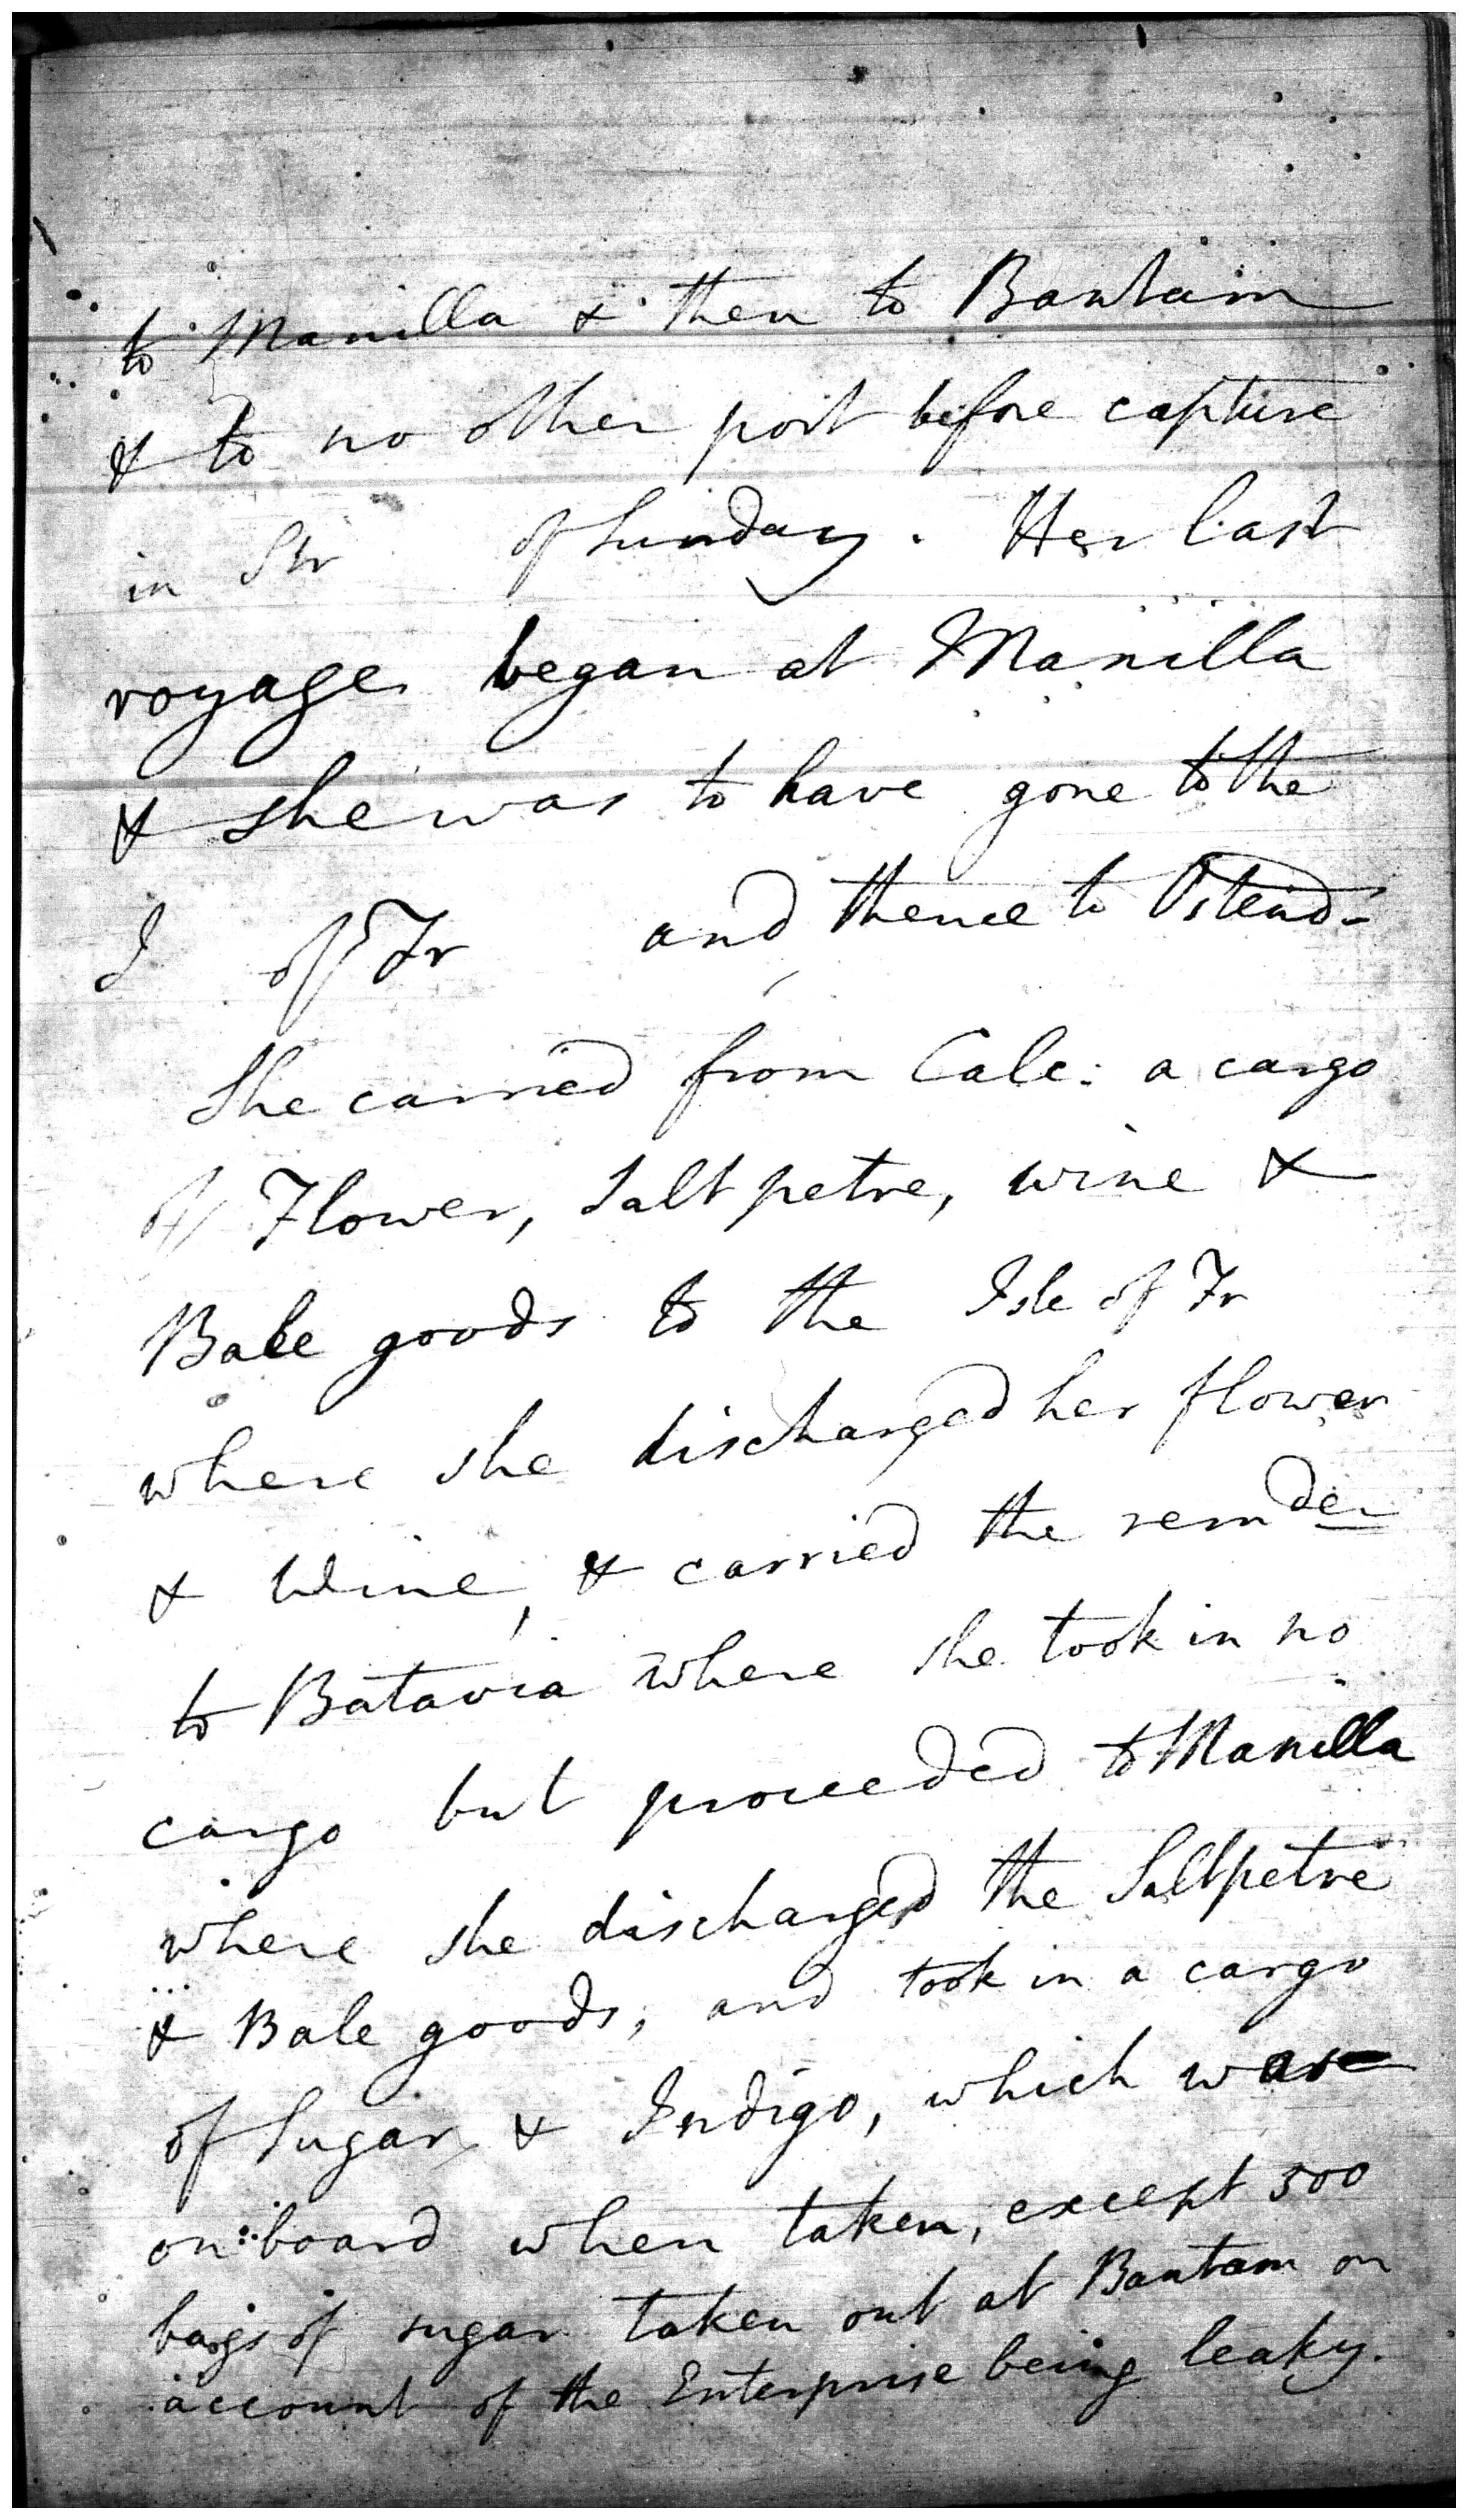 to Manilla & then to Bantam
& to no other port before capture
in Str of Sunday. Her last
voyage began at Manilla
& she was to have gone to the
I of Fr and thence to Ostend-
She carried from Calc: a cargo
of Flower, Salt petre, wine &
Bale goods to the Isle of Fr
where she discharged her flower
& Wine, & carried the remder
to Batavia where she took in no
cargo but proceeded to Manilla
where she discharged the Saltpetre
& Bale goods, and took in a cargo
of Sugar & Indigo, which was
on board when taken, except 500
bags of sugar taken out at Bantam on
account of the Enterprise being leaky.